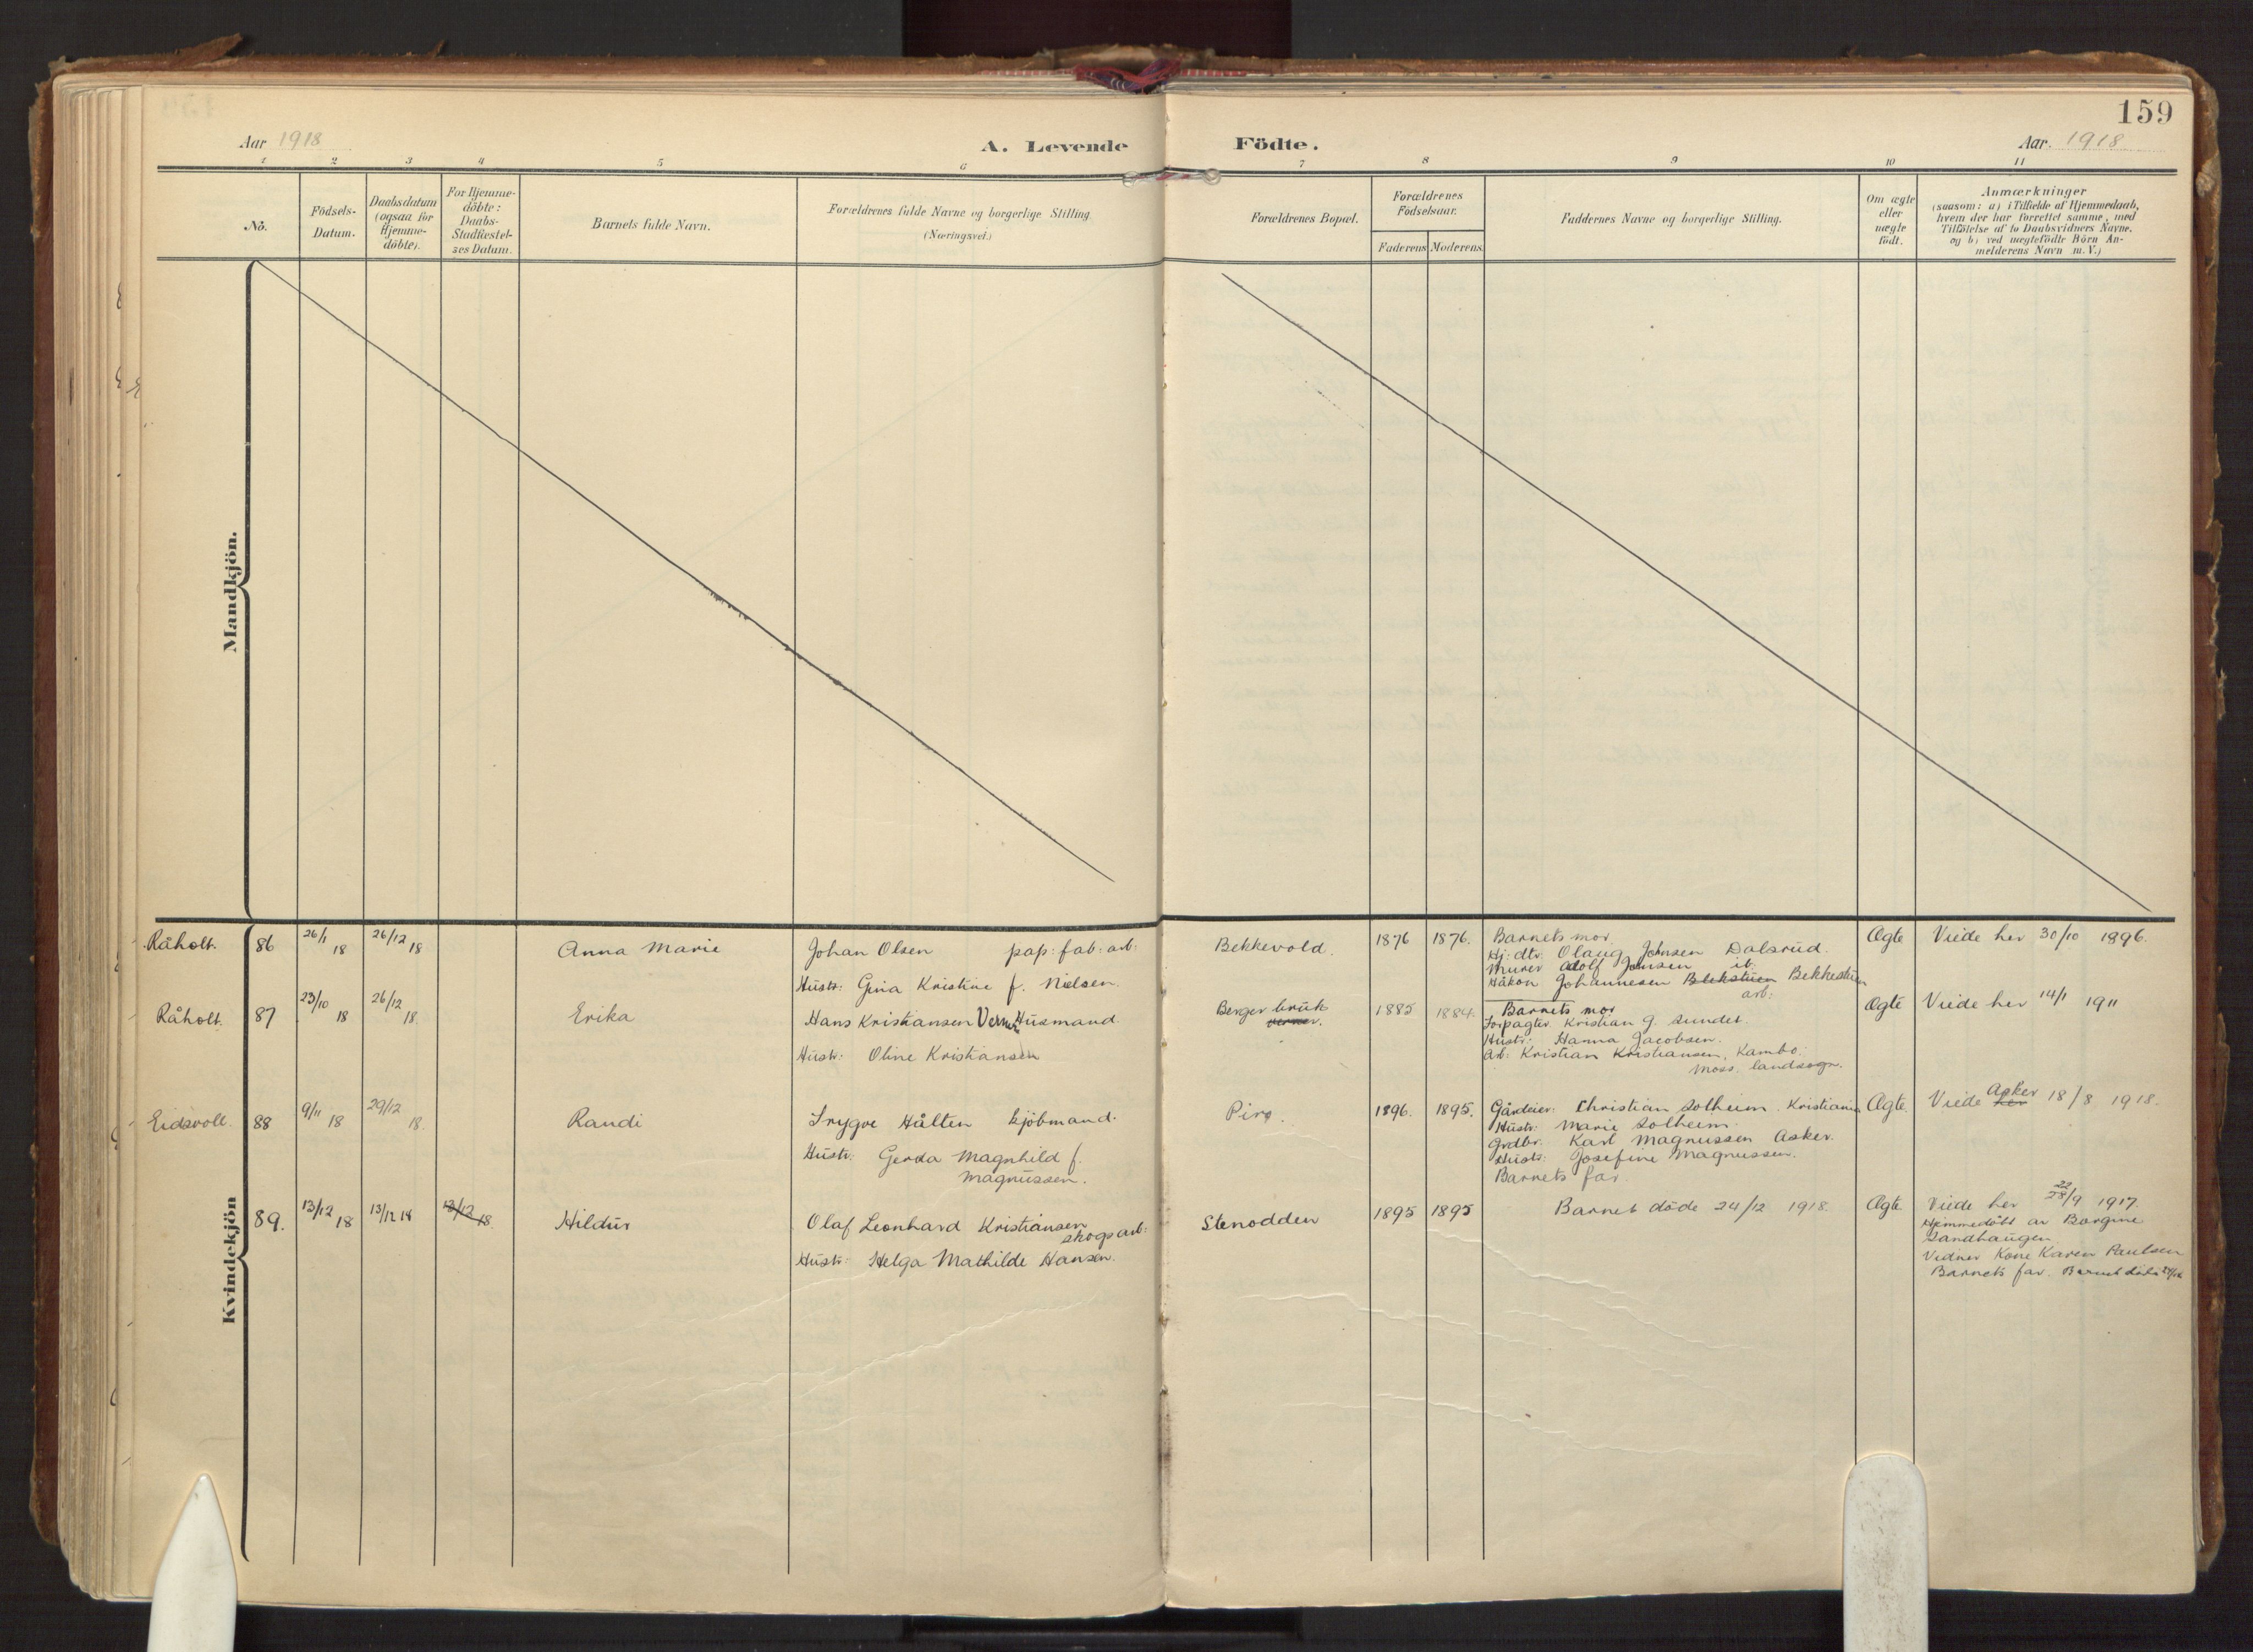 159
Aar 1918
A. Levende Födte.
Aar. 1918
1 2 3 4 5 6 7 8 9 10 11
No.
Födsels-
Datum.
Daabsdatum
(ogsaa for
Hjemme-
döbte).
For Hjemme-
döbte:
Daabs-
Stadfæstel-
ses Datum.
Barnets fulde Navn.
Forældrenes fulde Navne og borgerlige Stilling
(Næringsvei.)
Forældrenes Bopæl.
Forældrenes
Födselsaar.
Faderens Moderens
Faddernes Navne og borgerlige Stilling.
Om ægte
eller
uægte
födt.
Anmærkninger
(saasom: a) i Tilfælde af Hjemmedaab,
hvem der har forrettet samme, med
Tilföielse af to Daabsvidners Navne.
og b) ved uægtefödte Börn An-
melderens Navn m. V.)
Mandkjön.
Kvindekjön
Råholt.
86
26/1 18
26/12 18
Anna Marie
Johan Olsen pap: fab: arb:
Hustr: Gina Kristine f. Nielsen.
Bekkevold.
1876
1876.
Barnets mor.
Hj: dtr: Olaug Johnsen Dalsrud.
Murer Adolf Johnsen ib.
Håkon Johannesen Blekstuen Bekkestuen
arb:
Ægte
Viede her 30/10 1896.
Råholt.
87
23/10 18
26/12 18.
Erika
Hans Kristiansen Verner Husmand.
Hustr: Oline Kristiansen
Berger bruk
1885
1884.
Barnets mor
Forpagter Kristian G. Sundet.
Hustr: Hanna Jacobsen.
Arb: Kristian Kristiansen, Kambo.
Moss. landsogn.
Ægte
Viede her 14/1 1911
Eidsvoll.
88
9/11 18
29/12 18.
Randi
Trygve Hålten kjöbmand.
Hustr: Gerda Magnhild f.
Magnussen.
Piro.
1896.
1895.
Gårdeier: Christian Solheim. Kristiania
Hustr: Marie Solheim.
Grdbr. Karl Magnussen Asker.
Hustr: Josefine Magnussen.
Barnets far.
Ægte.
Viede her Asker 18/8 1918.
89.
13/12 18
13/12 18
13/12 18.
Hildur
Olaf Leonhard Kristiansen
skogsarb:
Hustr: Helga Mathilde Hansen.
Stenodden
1895
1895
Barnet döde 24/12 1918.
Ægte
22
Viede her 28/9 1917.
Hjemmedöbt av Borgine
Sandhaugen
Vidner Kone Karen Paulsen
Barnets far. Barnet döde 24/12